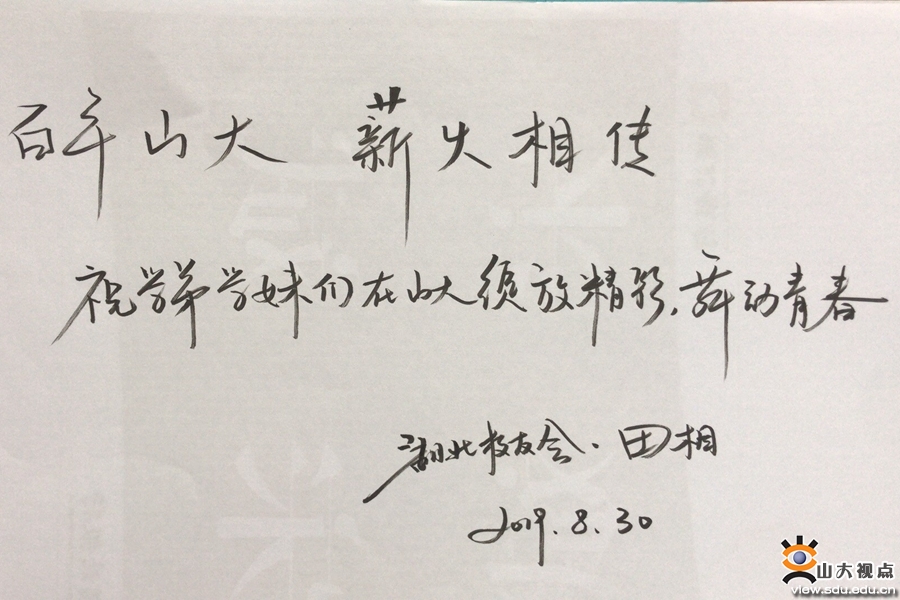 百年山大 薪火相传
祝学弟学妹们在山大绽放精彩,舞动青春
湖北校友会·田相
2019.8.30
山大视点
view.sdu.edu.cn